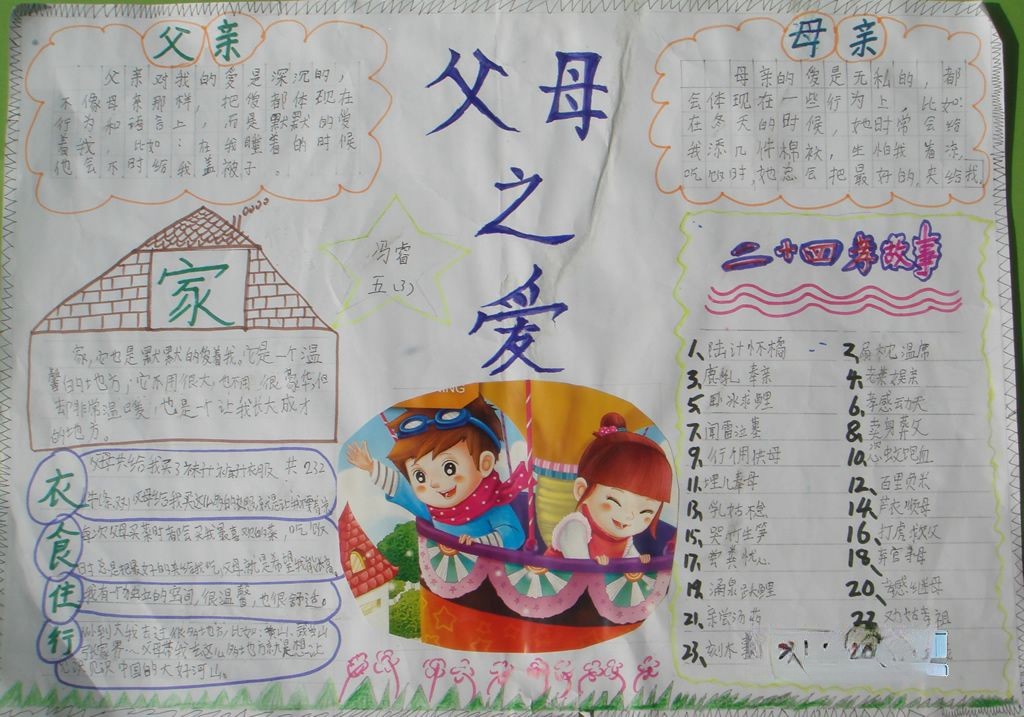 父亲
父亲对我的爱是深沉的，
不像母亲那样，把爱都体现在
行为和语言上，而是默默的爱
着我，比如：在我睡着的时候
他会不时给我盖被子。
父母
之
爱
母亲
母亲的爱是无私的，都
会体现在一些行为上，比如：
在冬天的时候，她时常会给
我添几件棉袄，生怕我着凉，
吃饭时，她总会把最好的，夹给我。
冯睿
五(3)
家
家，它也是默默的爱着我，它是一个温
馨的地方，它不用很大，也不用很豪华，但
却非常温暖，也是一个让我长大成才
的地方。
衣
父母共给我买了 衣服 共232
食
每次父母买菜时都会买我最喜欢的菜，吃饭
时总是把最好的夹给我吃，父母就是希望我
住
我有一个独立的空间，很温馨，也很舒适。
行
从小到大我去过很多地方，比如：
父母带我去这么多地方就是想让
我见识中国的大好河山。
二十四孝故事
1、陆计怀橘 2、扇枕温席
3、鹿乳奉亲 4、老莱娱亲
5、卧冰求鲤 6、孝感动天
7、闻雷泣墓 8、卖身葬父
9、行佣供母 10、
11、埋儿奉母 12、百里负米
13、 14、芦衣顺母
15、哭竹生笋 16、打虎救父
17、尝粪忧心 18、弃官寻母
19、涌泉跃鲤 20、
21、亲尝汤药 22、
23、刻木